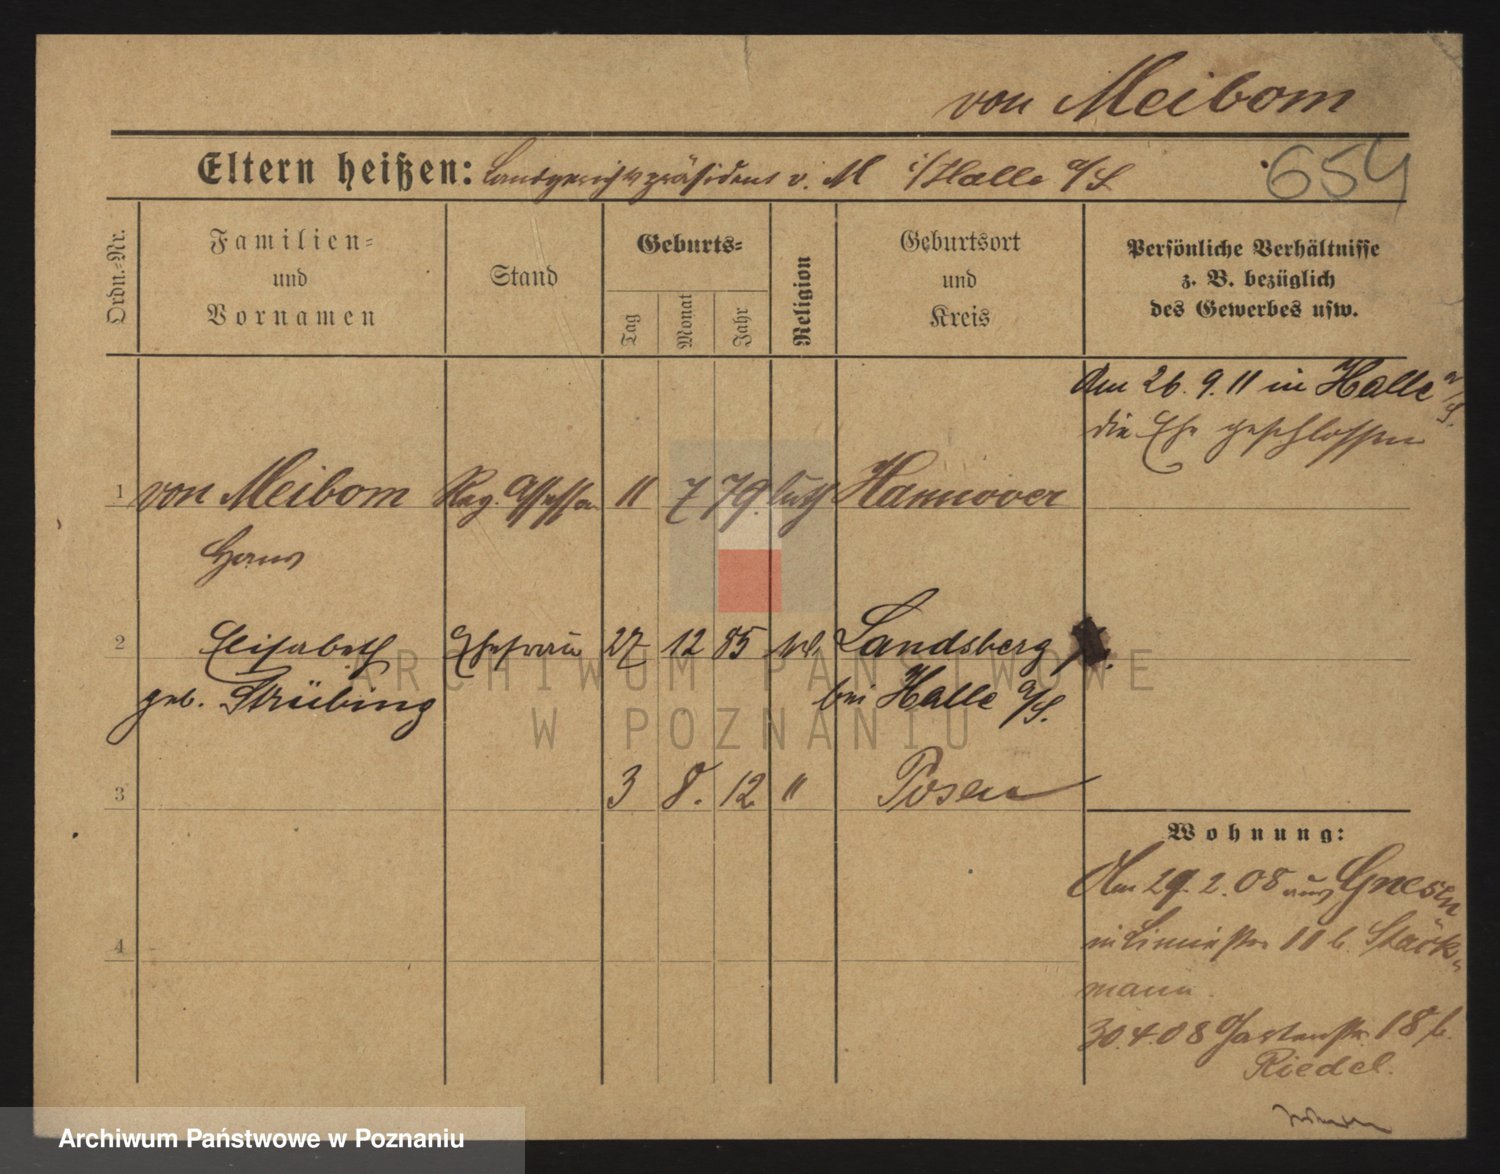 von Meibom
Eltern heißen: Landgerichtspräsident v. M i/Halle a/S
654
Ordn.-Nr.
Familien-
und
Vornamen
Stand
Geburts-
Tag
Monat
Jahr
Religion
Geburtsort
und
Kreis
Persönliche Verhältnisse
z. B. bezüglich
des Gewerbes usw.
Am 26.9.11 in Halle a/S.
die Ehe geschlossen
1 von Meibom Reg. Assessor 11 7 79. luth Hannover
Hans
2 Elisabeth Ehefrau 27 12 85 Landsberg
geb. Strübing bei Halle a/S.
3 3 8. 12 " Posen
4
Wohnung:
Am 29.2.08 aus Gnesen
11 b. Stärk-
mann.
30.4.08 Gartenstr. 18 b.
Riedel.
ARCHIWUM PAŃSTWOWE
W POZNANIU
Archiwum Państwowe w Poznaniu